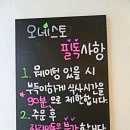 오네스토
필독사항
1. 웨이팅 있을 시
부득이하게 식사시간을
90분으로 제한합니다.
2. 주문 후